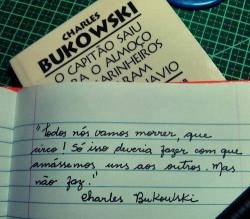 CHARLES
BUKOWSKI
O CAPITÃO SAIU
O ALMOÇO
MARINHEIROS
"Todos nós vamos morrer, que
circo! Só isso deveria fazer com que
amássemos uns aos outros. Mas
não faz."
Charles Bukowski